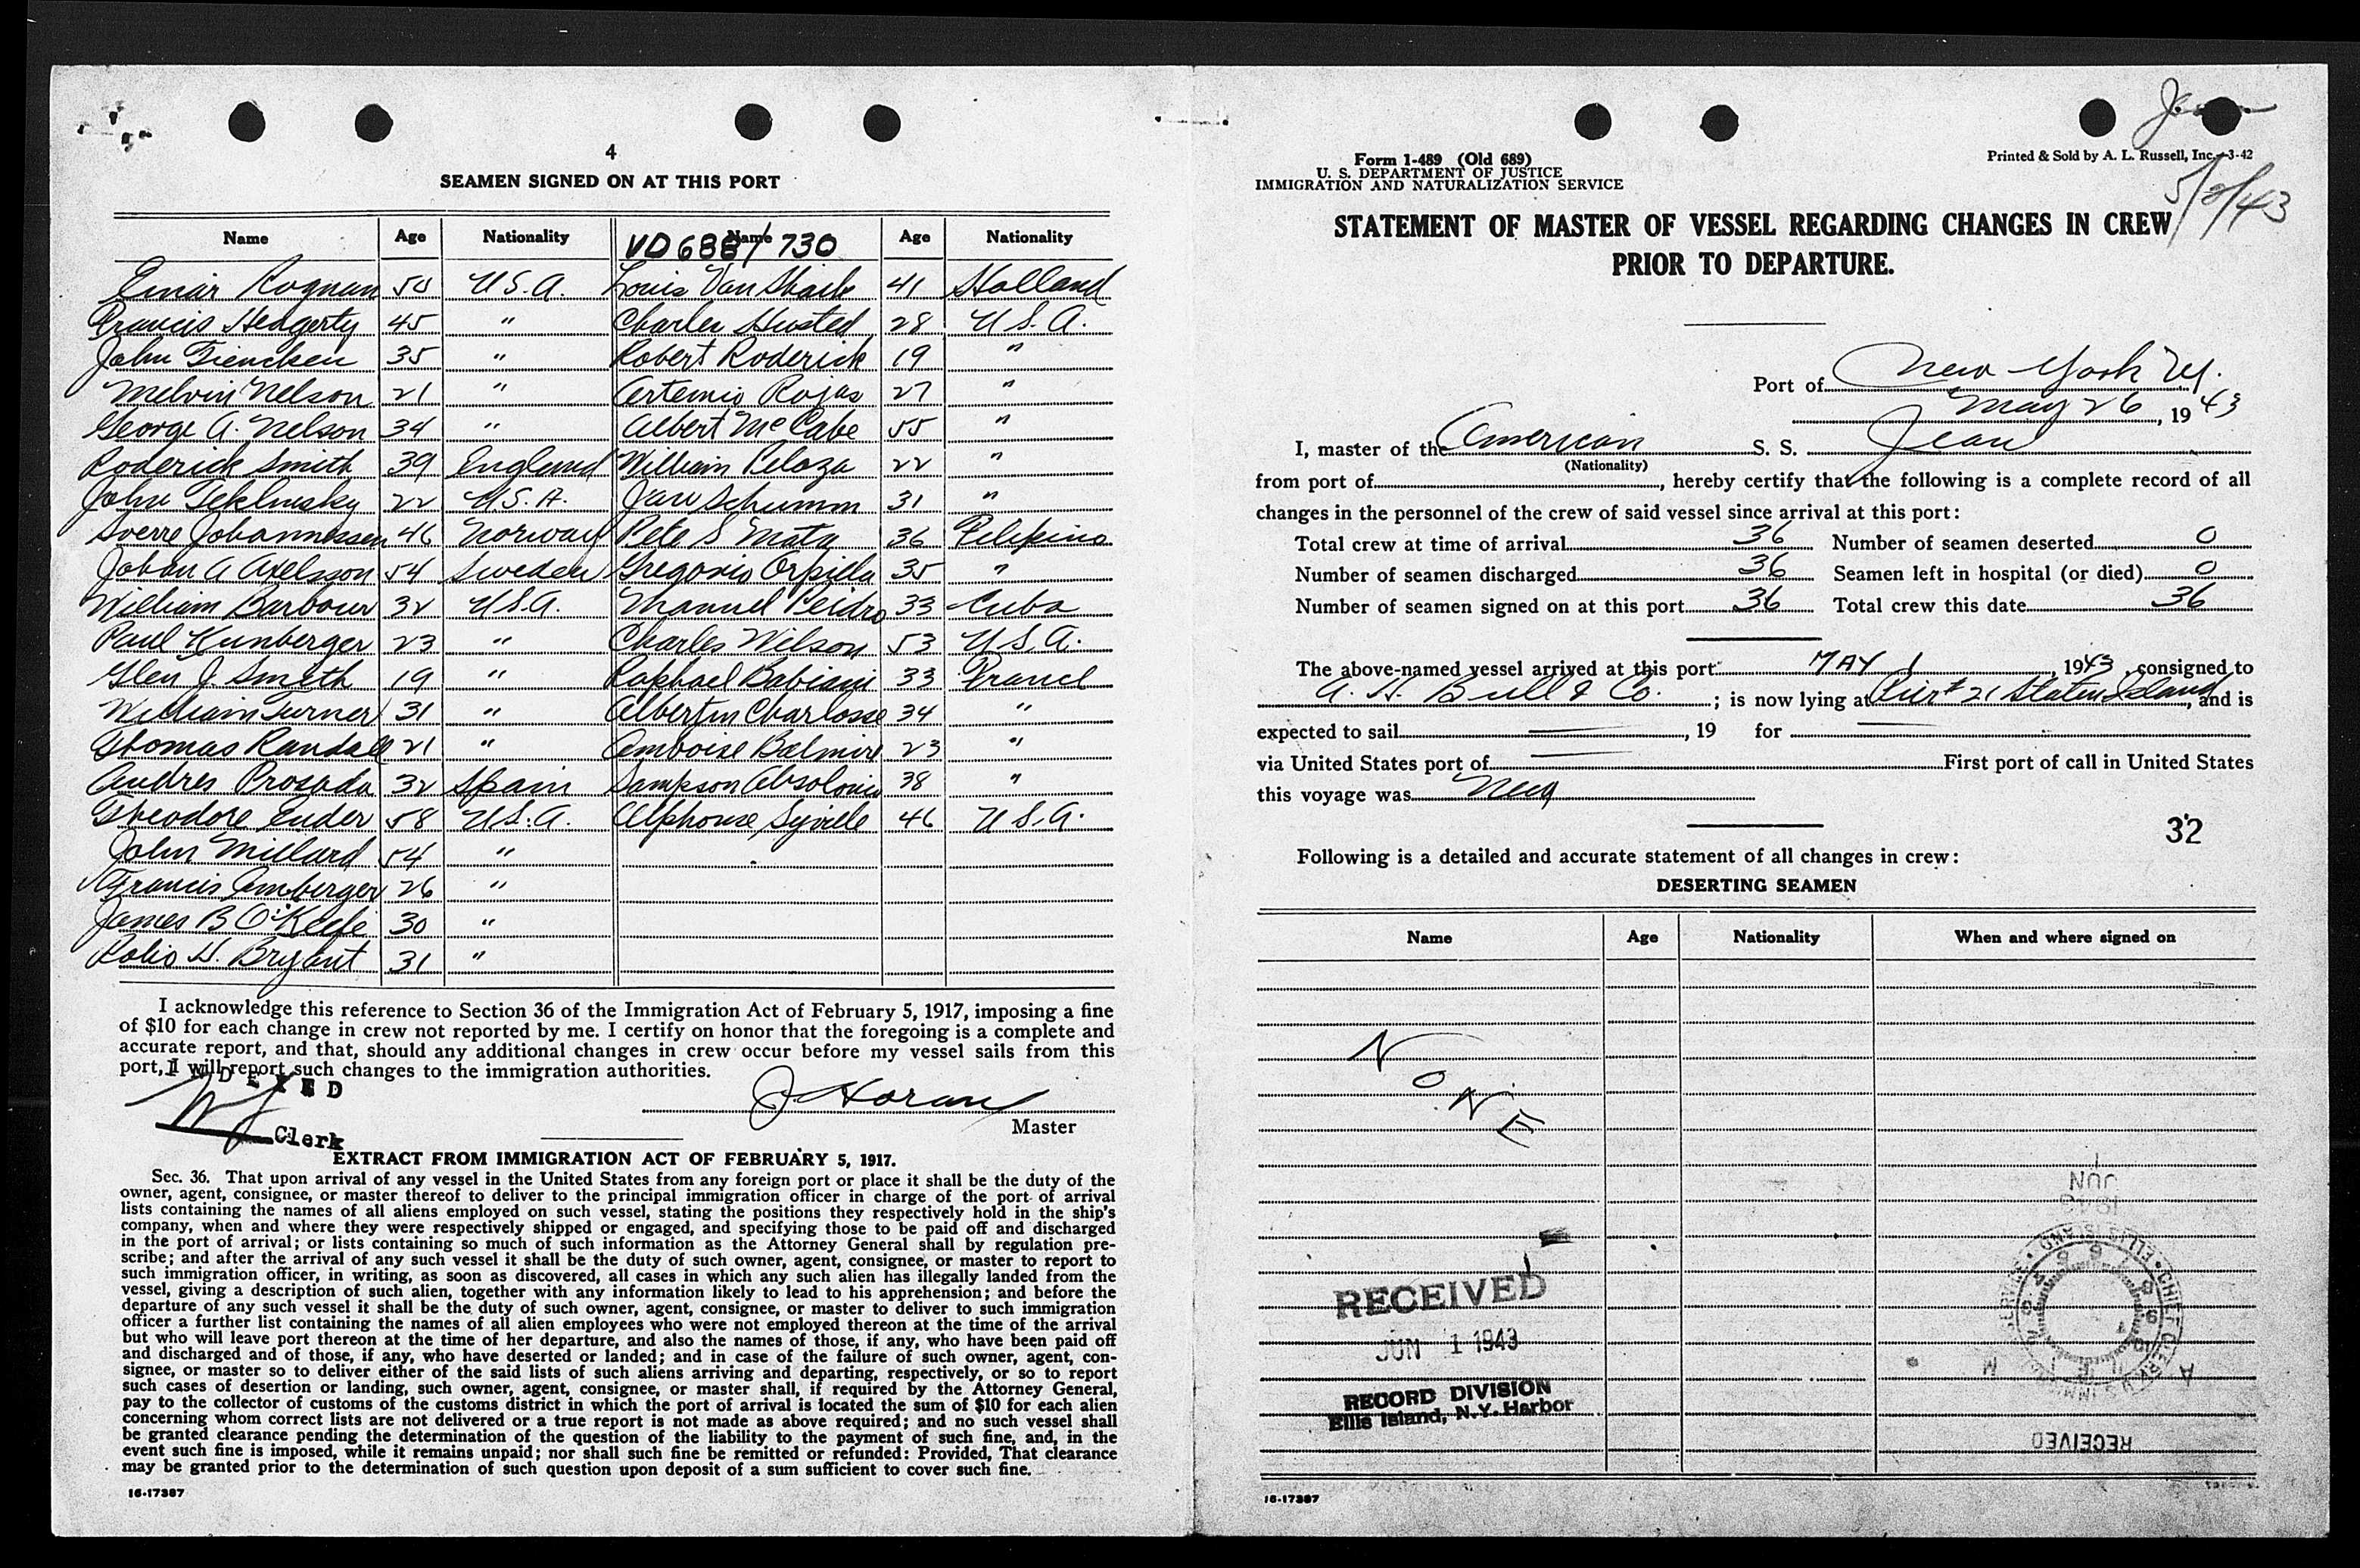 4
SEAMEN SIGNED ON AT THIS PORT
Name Age Nationality Name Age Nationality
VD 688/730
Einar Rognan 50 U.S.A. Louis Van 41 Holland
Francis Hedgerty 45 " Charles Husted 28 U.S.A.
John Tiencken 35 " Robert Roderick 19 "
Melvin Nelson 21 " Artemio Rojas 27 "
George A. Nelson 34 " Albert McCabe 55 "
Roderick Smith 39 England William Peloza 22 "
John 22 U.S.A. Jan Schumm 31 "
Sverre Johannessen 46 Norway Pete S Mata 36 Filipino
Johan A Axelsson 54 Sweden Gregorio Orpilla 35 "
William Barbour 32 U.S.A. Manuel Peidro 33 Cuba
Paul Kumberger 23 " Charles Wilson 53 U.S.A.
Glen J. Smith 19 " Raphael Babiani 33 France
William Turner 31 " Albertin Charlosse 34 "
Thomas Randall 21 " Amboise Balmire 23 "
Andres Prosada 32 Spain Sampson Absolonis 38 "
Theodore Ender 58 U.S.A. Alphonse Syville 46 U.S.A.
John Millard 54 "
Francis Amberger 26 "
James B O'Keefe 30 "
Rolio H. Bryant 31 "
I acknowledge this reference to Section 36 of the Immigration Act of February 5, 1917, imposing a fine
of $10 for each change in crew not reported by me. I certify on honor that the foregoing is a complete and
accurate report, and that, should any additional changes in crew occur before my vessel sails from this
port, I will report such changes to the immigration authorities.
J Horan
Master
Clerk
EXTRACT FROM IMMIGRATION ACT OF FEBRUARY 5, 1917.
Sec. 36. That upon arrival of any vessel in the United States from any foreign port or place it shall be the duty of the
owner, agent, consignee, or master thereof to deliver to the principal immigration officer in charge of the port of arrival
lists containing the names of all aliens employed on such vessel, stating the positions they respectively hold in the ship's
company, when and where they were respectively shipped or engaged, and specifying those to be paid off and discharged
in the port of arrival; or lists containing so much of such information as the Attorney General shall by regulation pre-
scribe; and after the arrival of any such vessel it shall be the duty of such owner, agent, consignee, or master to report to
such immigration officer, in writing, as soon as discovered, all cases in which any such alien has illegally landed from the
vessel, giving a description of such alien, together with any information likely to lead to his apprehension; and before the
departure of any such vessel it shall be the duty of such owner, agent, consignee, or master to deliver to such immigration
officer a further list containing the names of all alien employees who were not employed thereon at the time of the arrival
but who will leave port thereon at the time of her departure, and also the names of those, if any, who have been paid off
and discharged and of those, if any, who have deserted or landed; and in case of the failure of such owner, agent, con-
signee, or master so to deliver either of the said lists of such aliens arriving and departing, respectively, or so to report
such cases of desertion or landing, such owner, agent, consignee, or master shall, if required by the Attorney General,
pay to the collector of customs of the customs district in which the port of arrival is located the sum of $10 for each alien
concerning whom correct lists are not delivered or a true report is not made as above required; and no such vessel shall
be granted clearance pending the determination of the question of the liability to the payment of such fine, and, in the
event such fine is imposed, while it remains unpaid; nor shall such fine be remitted or refunded: Provided, That clearance
may be granted prior to the determination of such question upon deposit of a sum sufficient to cover such fine.
16-17387
Jean
Form 1-489 (Old 689)
U. S. DEPARTMENT OF JUSTICE
IMMIGRATION AND NATURALIZATION SERVICE
Printed & Sold by A. L. Russell, Inc. 3-42
STATEMENT OF MASTER OF VESSEL REGARDING CHANGES IN CREW
PRIOR TO DEPARTURE.
Port of New York N.Y.
May 26, 1943
I, master of the American S. S. Jean
(Nationality)
from port of , hereby certify that the following is a complete record of all
changes in the personnel of the crew of said vessel since arrival at this port:
Total crew at time of arrival 36 Number of seamen deserted 0
Number of seamen discharged 36 Seamen left in hospital (or died) 0
Number of seamen signed on at this port 36 Total crew this date 36
The above-named vessel arrived at this port MAY 1, 1943, consigned to
A. H. Bull & Co. ; is now lying at Pier # 21 Staten Island, and is
expected to sail , 19 for
via United States port of First port of call in United States
this voyage was
32
Following is a detailed and accurate statement of all changes in crew:
DESERTING SEAMEN
Name Age Nationality When and where signed on
NONE
RECEIVED
JUN 1 1943
RECORD DIVISION
Ellis Island, N.Y. Harbor
RECEIVED
16-17387